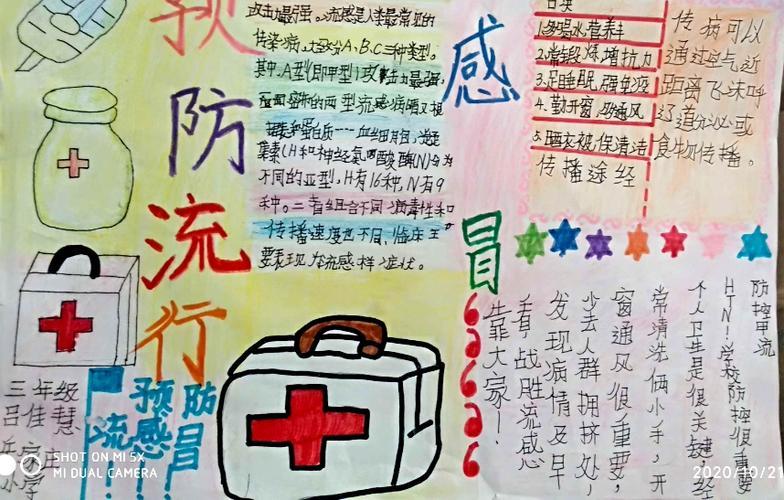 预
防
流
行
感
冒
攻击力最强。流感是人类最常见的
传染病,大致分A、B、C三种类型。
其中,A型(即甲型)攻击力最强,
不同的亚型,H有16种,N有9
种。二者组合不同,病毒性和
传播速度也不同,临床主
要表现为流感样症状。
1.多喝水,营养丰
2.常锻炼,增抗力
3.足睡眠,强免疫
4.勤开窗,多通风
5.晒衣被,保清洁
传播途经
传 病可以
通过空气、近
距离飞沫呼
食物传播。
防控甲流
H1N1学校防控很重要
个人卫生是很关键
常清洗俩小手,开
窗通风很重要,
少去人群拥挤处!
发现病情及早
看 战胜流感
靠大家!
三年级
吕佳慧
小学
防冒
预感
流
SHOT ON MI 5X
MI DUAL CAMERA
2020/10/21